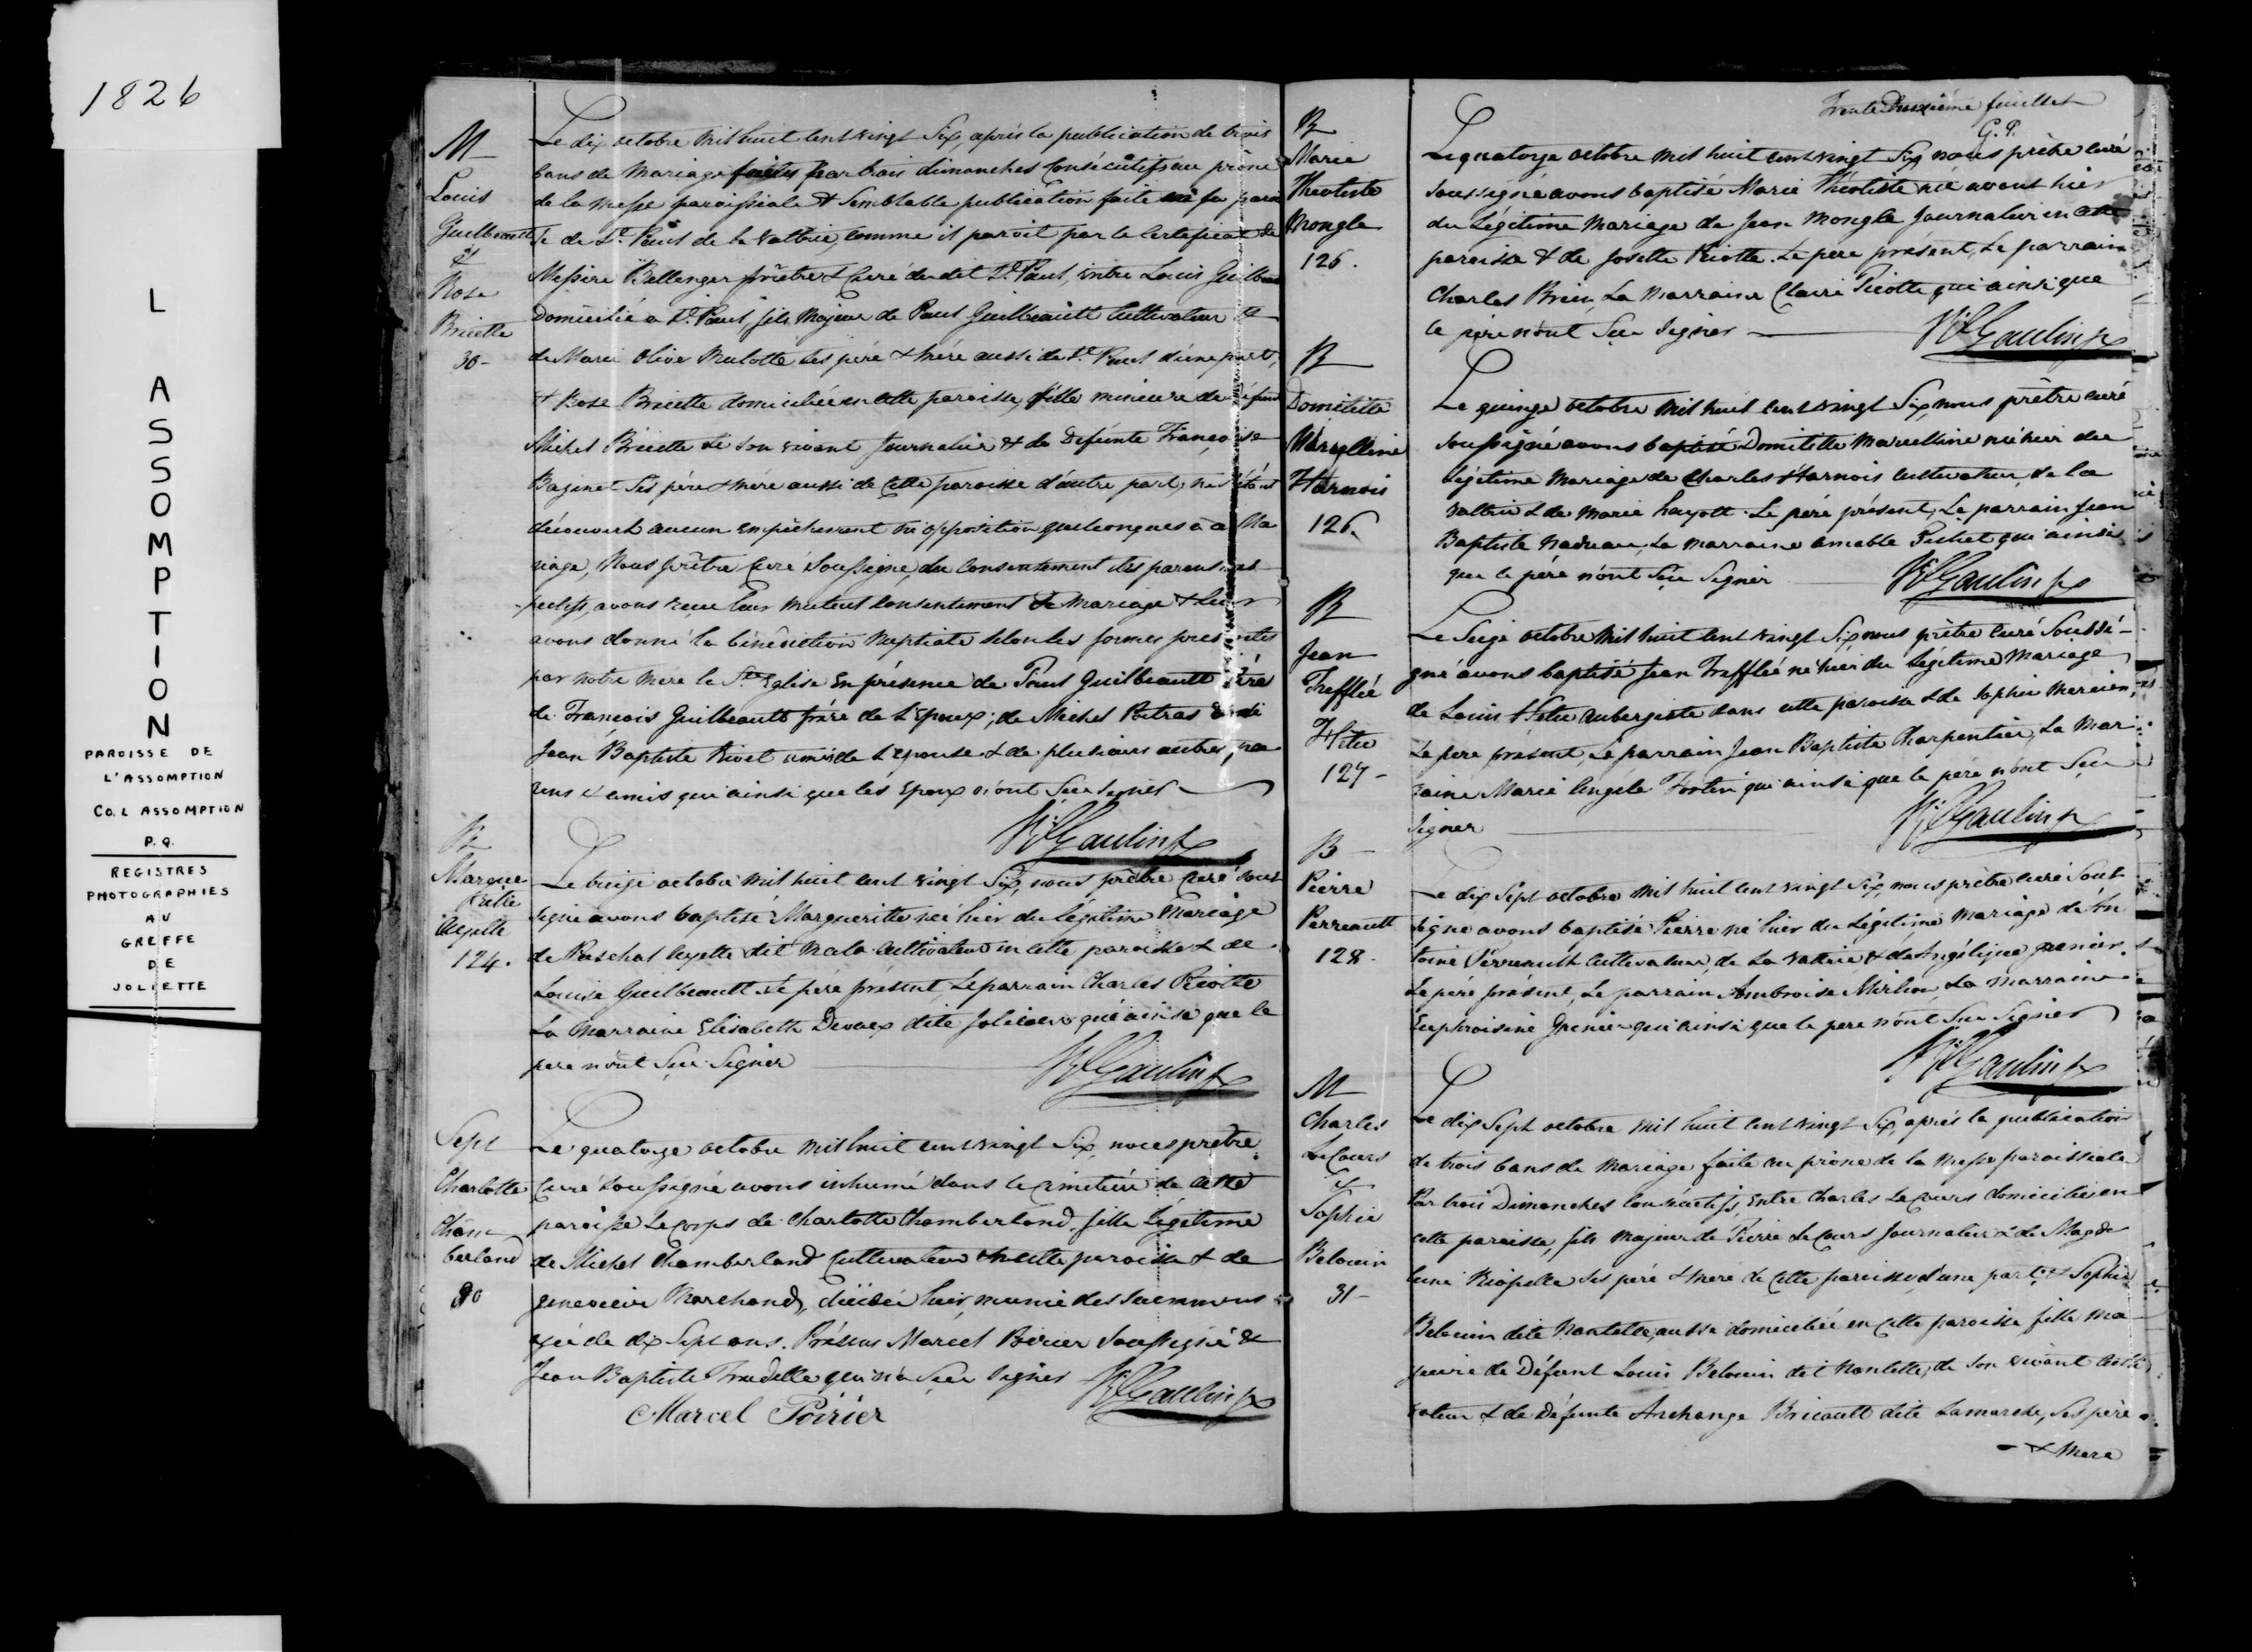 1826
L
A
S
S
O
M
P
T
I
O
N
PAROISSE DE
L'ASSOMPTION
CO. L ASSOMPTION
P.Q.
REGISTRES
PHOTOGRAPHIES
AU
GREFFE
DE
JOLIETTE
M
Louis
Guilbeault
&
Rose
Bricette
30-
Le dix octobre mil huit cent vingt Six, après la publication de trois
bans de Mariage faites par trois dimanches Consécutifs au prône
de la Messe paroissiale & Semblable publication faite en la parois
se de St. Paul de la valtrie, comme il paroit par le Certificat de
Messire Bellenger prêtre & Curé du dit St. Paul, entre Louis Guilbeau
Domicilié à St. Paul, fils Majeur de Paul Guilbeault Cultivateur &
de Marie Olive Mulotte Ses père & mère aussi de St. Paul d'une part,
& Rose Bricette domiciliée en cette paroisse, fille mineure de défunt
Michel Bricette de Son vivant Journalier & de Défunte Françoise
Bazinet Ses père & mère aussi de Cette paroisse d'autre part, ne s'étant
découvert aucun empêchement ni opposition quelconques à ce Ma
riage, Nous prêtre Curé Soussigné, du Consentement des parens res
pectifs, avons reçu leur mutuel Consentement de Mariage & leur
avons donné la bénédiction Nuptiale Selon les formes prescrites
par notre Mère la Ste Eglise En présence de Paul Guilbeault père
de François Guilbeault frère de l'Epoux; de Michel Poitras & de
Jean Baptiste Rivet amis de l'Epouse & de plusieurs autres pa
rens & amis qui ainsi que les Epoux n'ont Sçu Signer
Gaulin ptre
B
Margue
ritte
Ayette
124.
Le treize octobre mil huit cent vingt Six, nous prêtre Curé Sous
Signé avons baptisé Marguerite née hier du légitime Mariage
de Paschal Ayette dit Malo Cultivateur en cette paroisse & de
Louise Guilbeault. Le père présent, Le parrain Charles Riotte
La Marraine Elisabeth Devaux dite Jolicoeur qui ainsi que le
pere n'ont Sçu Signer
Gaulin ptre
Sept
Charlotte
Cham
berland
90
Le quatorze octobre mil huit cent vingt Six, nous prêtre
Curé Soussigné avons inhumé dans le cimetière de cette
paroisse Le corps de Charlotte Chamberland, fille Légitime
de Michel Chamberland Cultivateur en cette paroisse & de
Genevieve Marchand, décédée hier, munie des Sacremens
agée de dix Sept ans. Présens Marcel Poirier Soussigné &
Jean Baptiste Trudelle qui n'a Sçu Signer
Gaulin ptre
Marcel Poirier
Trente Deuxième feuillet
G. P.
B
Marie
Theotiste
Mongle
125.
Le quatorze octobre mil huit cent vingt Six nous prêtre curé
Soussigné avons baptisé Marie Théotiste née avant hier
du Légitime Mariage de Jean Mongle Journalier en cette
paroisse & de Josette Riotte. Le pere présent, Le parrain
Charles Brien, La Marraine Claire Picotte qui ainsi que
le père n'ont Sçu Signer
Gaulin ptre
B
Domitille
Marcelline
Harnois
126.
Le quinze octobre mil huit cent vingt Six, nous prêtre curé
Soussigné avons baptisé Domitille Marcelline née hier du
légitime Mariage de Charles Harnois Cultivateur, de la
valtrie & de Marie Payett. Le père présent, Le parrain Jean
Baptiste Nadreau, La marraine Amable Pichet qui ainsi
que le père n'ont Sçu Signer
Gaulin ptre
B
Jean
Trefflée
Hétu
127-
Le Seize octobre mil huit cent vingt Six, nous prêtre curé Soussi-
gné avons baptisé Jean Trefflée né hier du Légitime Mariage
de Louis Hétu Aubergiste dans cette paroisse & de Sophie Mercier,
Le pere présent, Le parrain Jean Baptiste Charpentier, La Mar
raine Marie Angèle Fortin qui ainsi que le père n'ont Sçu
Signer
Gaulin ptre
B
Pierre
Perreault
128.
Le dix Sept octobre mil huit cent vingt Six, nous prêtre curé Sous
Signé avons baptisé Pierre né hier du Légitime Mariage de An
toine Perreault Cultivateur, de la Valtrie & de Angélique Grenier.
Le pere présent, Le parrain Ambroise Mirhou La Marraine
Euphroisine Grenier qui ainsi que le pere n'ont Sçu Signer
Gaulin ptre
M
Charles
LeCours
&
Sophie
Belouin
31-
Le dix Sept octobre mil huit cent vingt Six, après la publication
de trois bans de Mariage faite au prône de la Messe paroissiale
Par trois Dimanches Consécutifs, Entre Charles LeCours domicilié en
cette paroisse, fils Majeur de Pierre LeCours Journalier & de Magde
leine Riopelle Ses père & mère de Cette paroisse, d'une part; & Sophie
Belouin dite Nantelle, aussi domiciliée en Cette paroisse fille ma
jeure de Défunt Louis Belouin dit Nantelle, de Son vivant Culti
vateur & de Défunte Archange Bricault dite Lamarche, Ses père
- & Mere